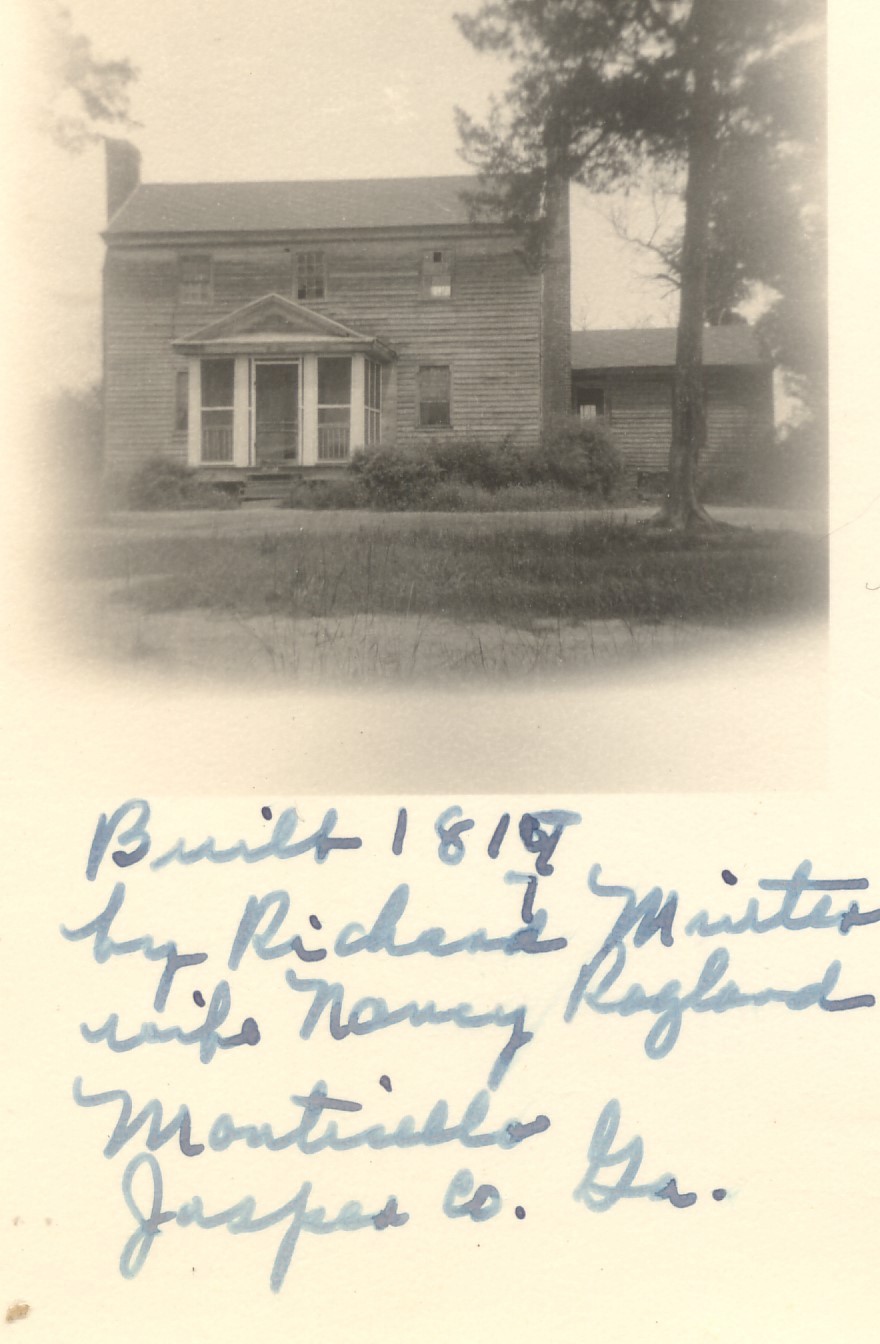 Built
by Richard Minter
wife Nancy Ragland
Monticello
Jasper Co. Ga.